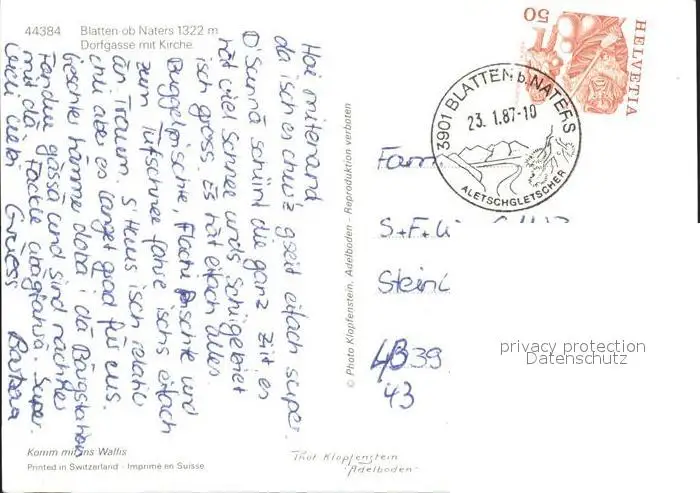 44384 Blatten ob Naters 1322 m
Dorfgasse mit Kirche
Hoi mitenand
da isch es churz gseit eifach super.
D'Sunnä schiint die ganz Ziit, es
hät viel Schnee und s Schigebiet
isch gross. Es hät eifach alles
Buggelpischte, Flachi Pischte und
zum Tüfschnee fahre isch's eifach
än Traum. S'Huus isch relativ
chli aber es langet grad für eus.
Geschter hämmer dobä i dä Bärgstation
dä Fackle
Grüess Barbara
Komm mit ins Wallis
Printed in Switzerland - Imprimé en Suisse
© Photo Klopfenstein, Adelboden - Reproduktion verboten
Phot Klopfenstein
Adelboden
HELVETIA
50
3901 BLATTEN b. NATERS
23.1.87-10
ALETSCHGLETSCHER
Fam.
S.+F.
Stein
4839
43
privacy protection
Datenschutz